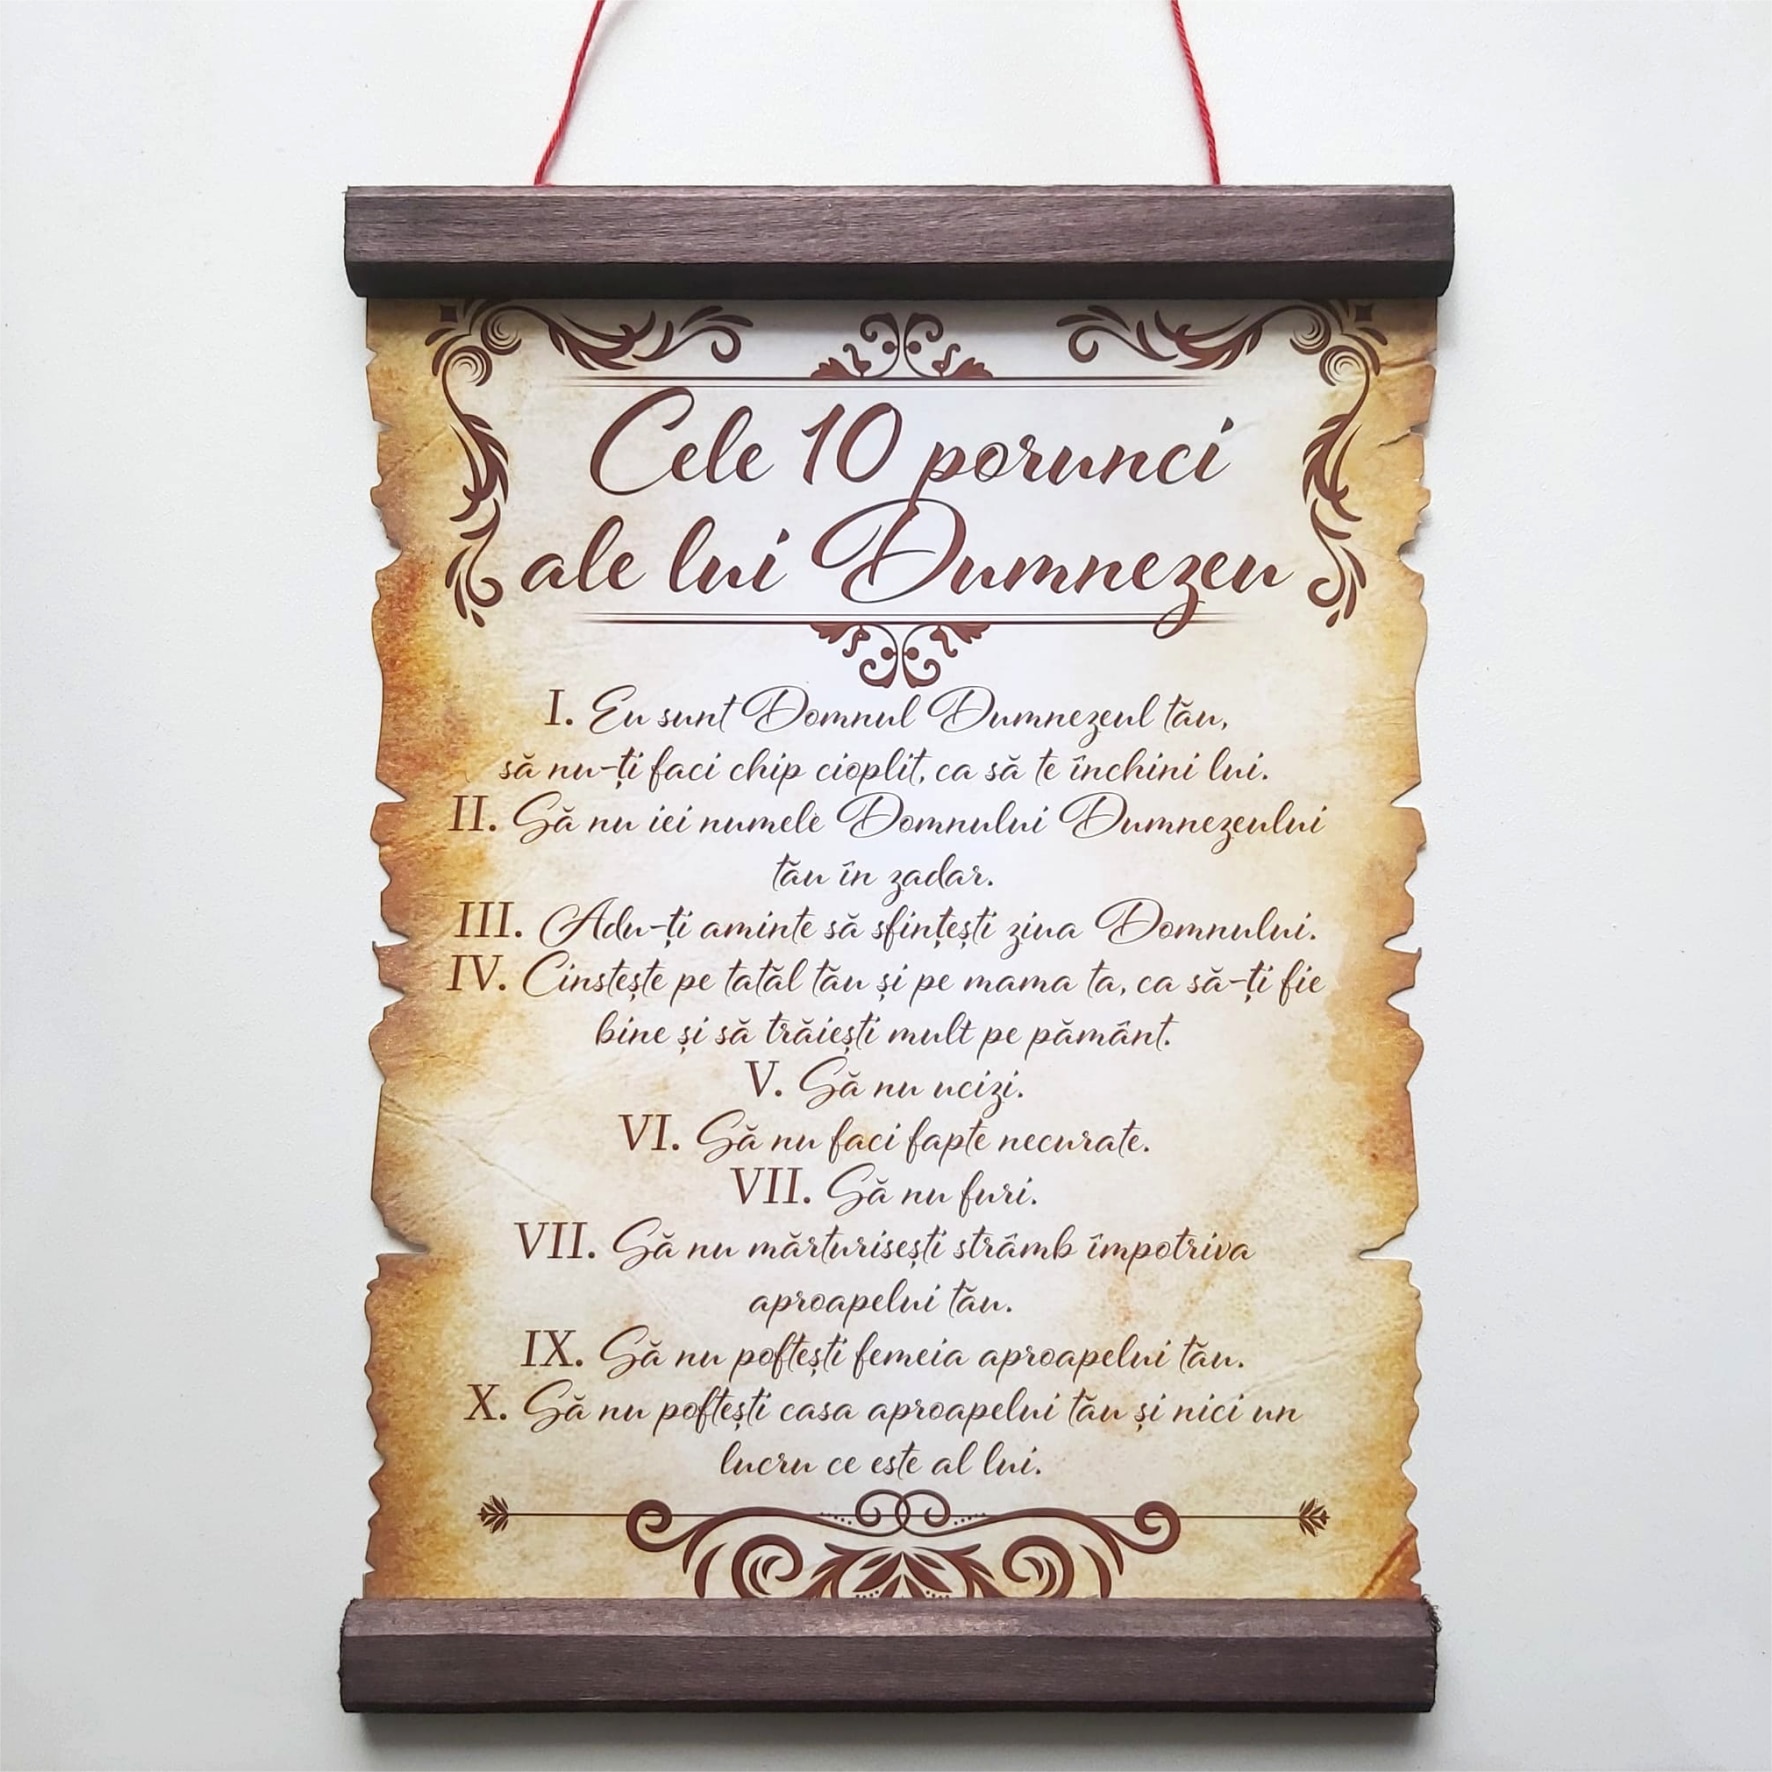 Cele 10 porunci
ale lui Dumnezeu
I. Eu sunt Domnul Dumnezeul tău,
să nu-ți faci chip cioplit, ca să te închini lui.
II. Să nu iei numele Domnului Dumnezeului
tău în zadar.
III. Adu-ți aminte să sfințești ziua Domnului.
IV. Cinstește pe tatăl tău și pe mama ta, ca să-ți fie
bine și să trăiești mult pe pământ.
V. Să nu ucizi.
VI. Să nu faci fapte necurate.
VII. Să nu furi.
VII. Să nu mărturisești strâmb împotriva
aproapelui tău.
IX. Să nu poftești femeia aproapelui tău.
X. Să nu poftești casa aproapelui tău și nici un
lucru ce este al lui.